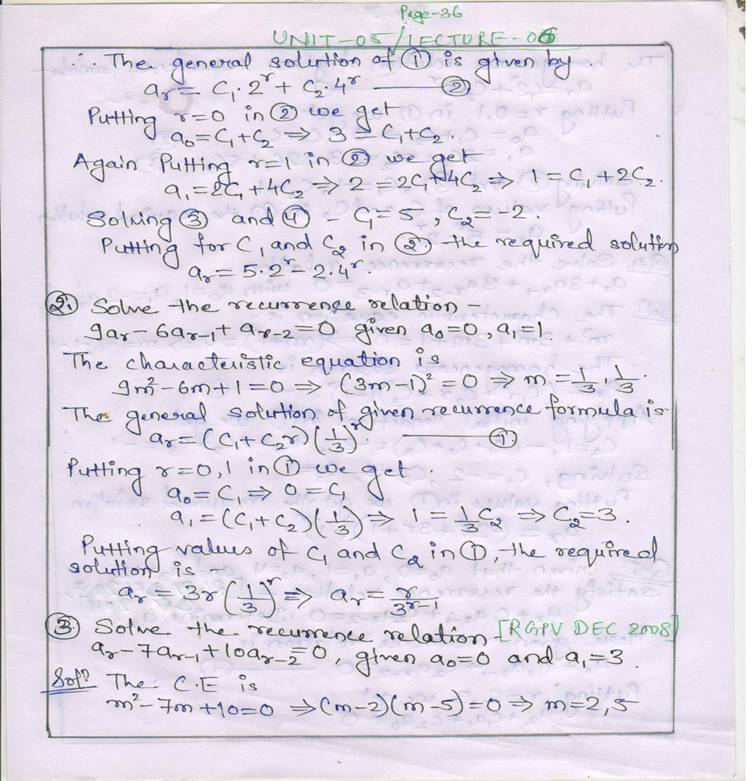 Page-36
UNIT-05/LECTURE-06
∴ The general solution of ① is given by.
aᵣ = C₁·2ʳ + C₂·4ʳ —— ②
Putting r=0 in ② we get
a₀ = C₁+C₂ ⇒ 3 = C₁+C₂.
Again Putting r=1 in ② we get
a₁ = 2C₁+4C₂ ⇒ 2 = 2C₁+4C₂ ⇒ 1 = C₁+2C₂.
Solving ③ and ④ - C₁=5, C₂=-2.
Putting for C₁ and C₂ in ② the required solution
aᵣ = 5·2ʳ - 2·4ʳ.
②. Solve the recurrence relation -
9aᵣ - 6aᵣ₋₁ + aᵣ₋₂ = 0 given a₀=0, a₁=1.
The characteristic equation is
9m² - 6m + 1 = 0 ⇒ (3m-1)² = 0 ⇒ m = 1/3, 1/3.
The general solution of given recurrence formula is
aᵣ = (C₁+C₂r)(1/3)ʳ —— ①
Putting r=0,1 in ① we get.
a₀ = C₁ ⇒ 0 = C₁
a₁ = (C₁+C₂)(1/3) ⇒ 1 = 1/3 C₂ ⇒ C₂=3.
Putting values of C₁ and C₂ in ①, the required
solution is -
aᵣ = 3r(1/3)ʳ ⇒ aᵣ = r/3ʳ⁻¹
③ Solve the recurrence relation [RGPV DEC 2008]
aᵣ - 7aᵣ₋₁ + 10aᵣ₋₂ = 0, given a₀=0 and a₁=3.
Solⁿ The C.E is
m² - 7m + 10 = 0 ⇒ (m-2)(m-5) = 0 ⇒ m = 2, 5